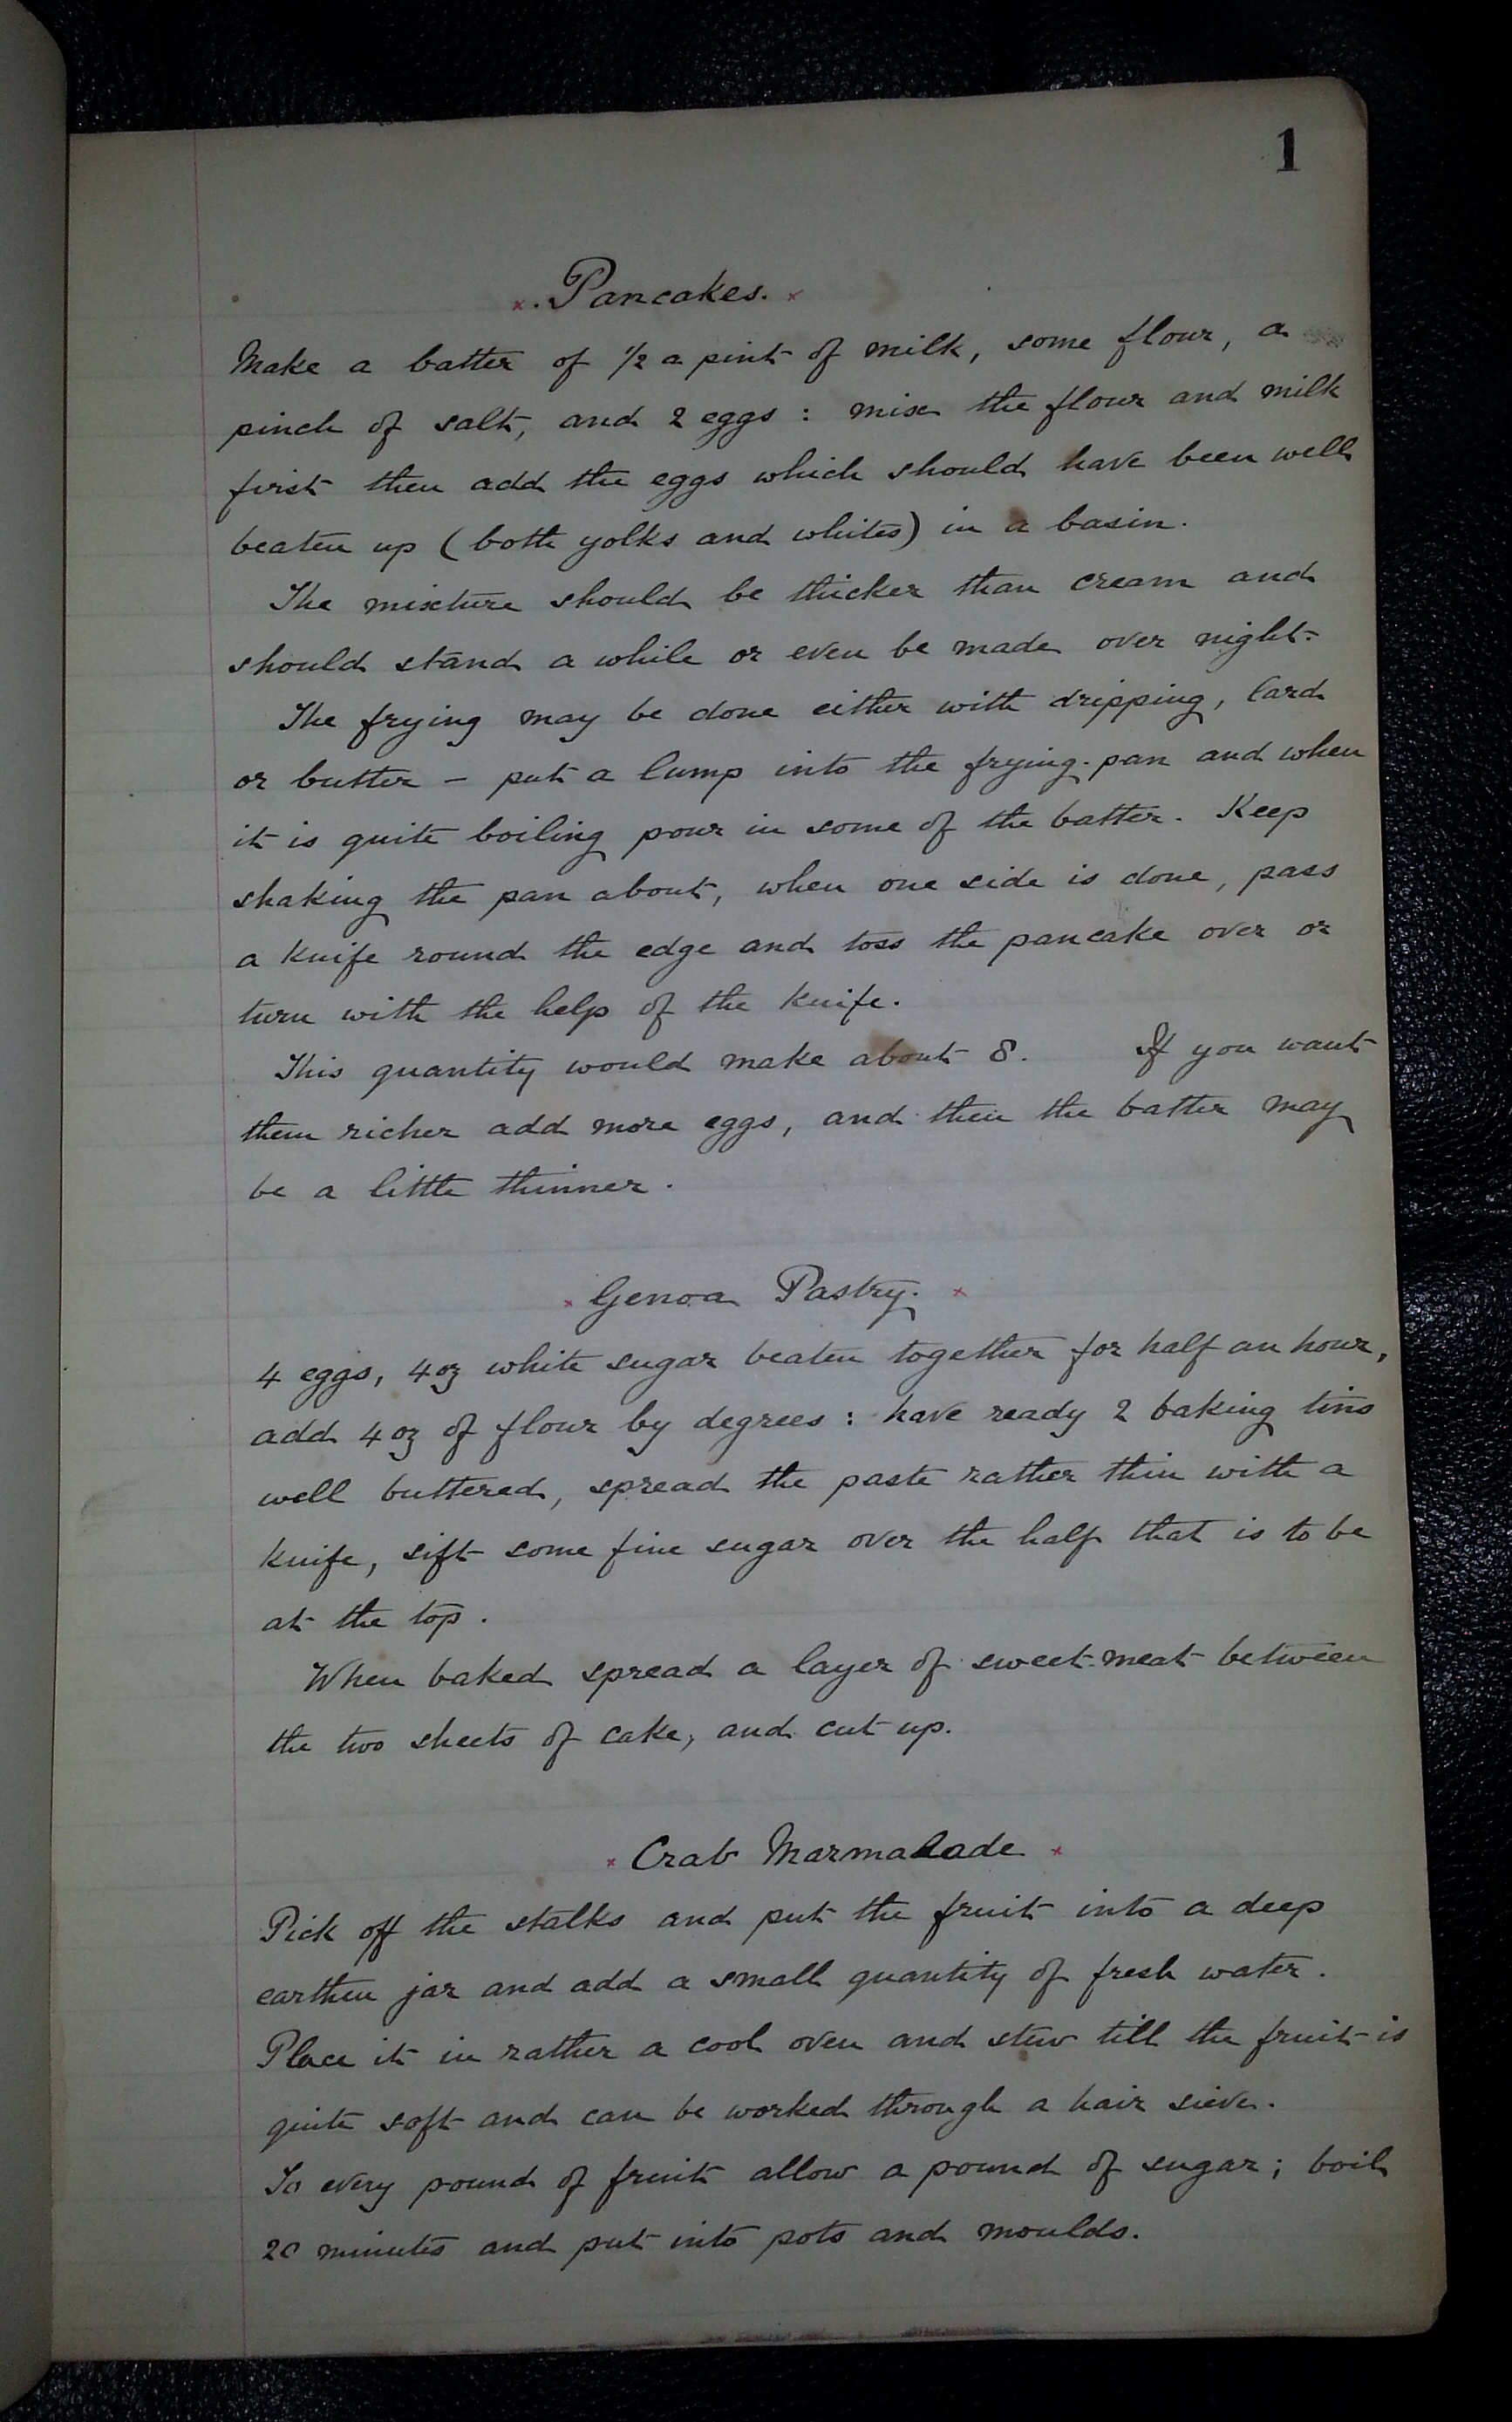 1
Pancakes.
Make a batter of 1/2 a pint of milk, some flour, a
pinch of salt, and 2 eggs : mix the flour and milk
first then add the eggs which should have been well
beaten up (both yolks and whites) in a basin.
The mixture should be thicker than cream and
should stand a while or even be made over night.
The frying may be done either with dripping, lard
or butter – put a lump into the frying-pan and when
it is quite boiling pour in some of the batter. Keep
shaking the pan about, when one side is done, pass
a knife round the edge and toss the pancake over or
turn with the help of the knife.
This quantity would make about 8. If you want
them richer add more eggs, and then the batter may
be a little thinner.
Genoa Pastry.
4 eggs, 4oz white sugar beaten together for half an hour,
add 4oz of flour by degrees : have ready 2 baking tins
well buttered, spread the paste rather thin with a
knife, sift some fine sugar over the half that is to be
at the top.
When baked spread a layer of sweet-meat between
the two sheets of cake, and cut up.
Crab Marmalade
Pick off the stalks and put the fruit into a deep
earthen jar and add a small quantity of fresh water.
Place it in rather a cool oven and stew till the fruit is
quite soft and can be worked through a hair sieve.
To every pound of fruit allow a pound of sugar; boil
20 minutes and put into pots and moulds.